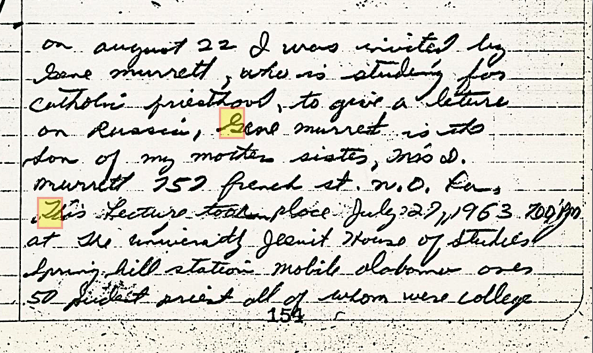 on august 22 I was invited by
Gene murrett, who is studing for
catholic priesthood, to give a lecture
on Russia, Gene murret is the
son of my mothers sister, mrs D.
murrett 757 french st. N.O. La,
This Lecture took place July 27, 1963 7:00 pm
at the university Jesuit House of Studies
Spring hill station mobile alabama
50 priest all of whom were college
154